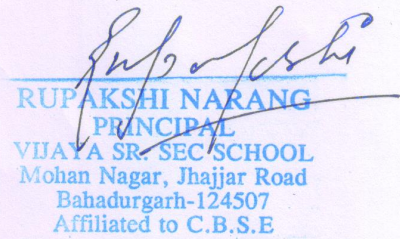 Rupakshi
RUPAKSHI NARANG
PRINCIPAL
VIJAYA SR. SEC SCHOOL
Mohan Nagar, Jhajjar Road
Bahadurgarh-124507
Affiliated to C.B.S.E